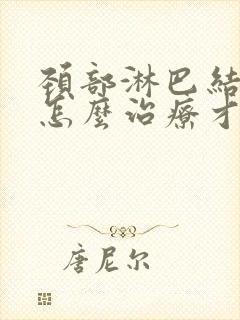 頚部淋巴結
怎麼治療才
唐尼尔